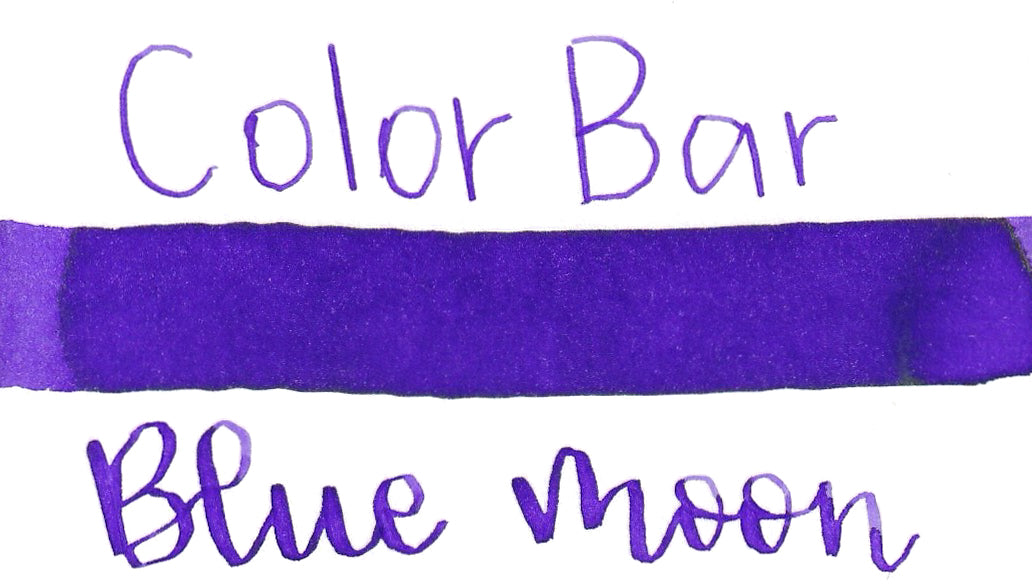 Color Bar
Blue moon